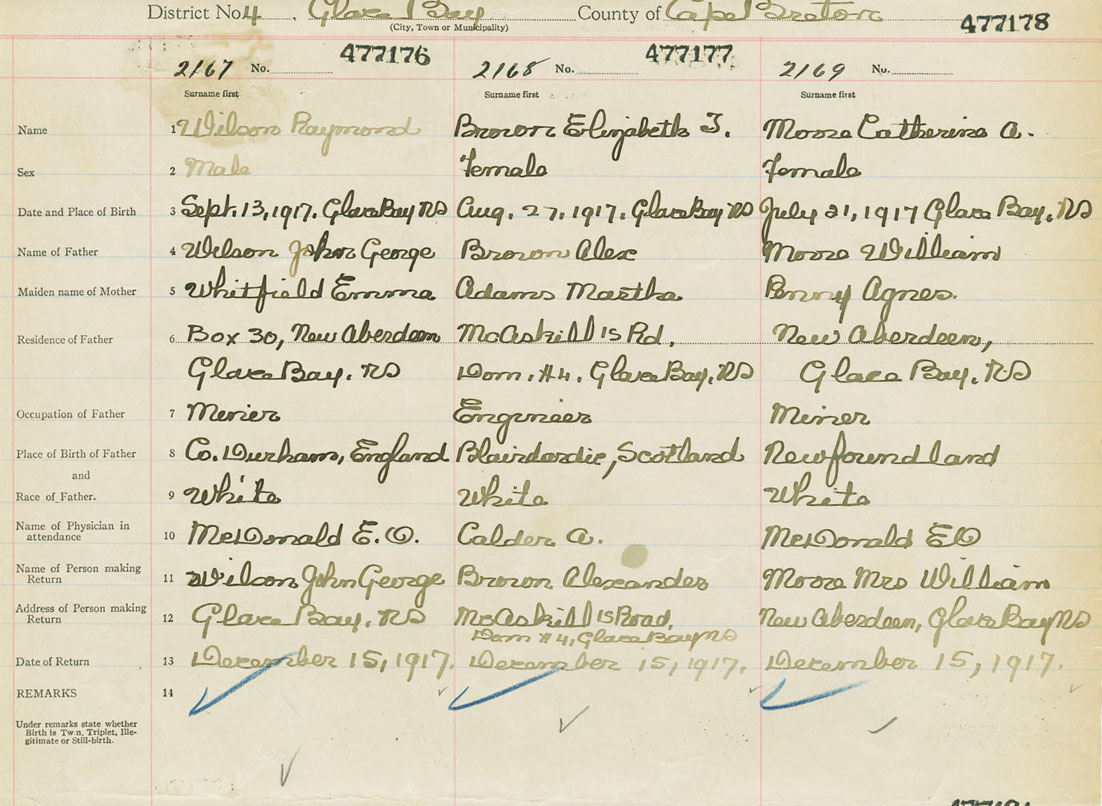 District No. 4, Glace Bay County of Cape Breton
(City, Town or Municipality) 477178
477176 477177
2167 No. 2168 No. 2169 No.
Surname first Surname first Surname first
Name 1 Wilson Raymond Brown Elizabeth J. Moore Catherine A.
Sex 2 Male Female Female
Date and Place of Birth 3 Sept. 13, 1917. Glace Bay NS Aug. 27, 1917. Glace Bay NS July 21, 1917 Glace Bay, NS
Name of Father 4 Wilson John George Brown Alex Moore William
Maiden name of Mother 5 Whitfield Emma Adams Martha Penny Agnes.
Residence of Father 6 Box 30, New Aberdeen McAskill's Rd, New Aberdeen,
Glace Bay. NS Dom. #4, Glace Bay, NS Glace Bay, NS
Occupation of Father 7 Minier Engineer Miner
Place of Birth of Father 8 Co. Durham, England Blairdardie, Scotland Newfoundland
and
Race of Father. 9 White White White
Name of Physician in
attendance 10 McDonald E. O. Calder A. McDonald EO
Name of Person making
Return 11 Wilson John George Brown Alexander Moore Mrs William
Address of Person making
Return 12 Glace Bay. NS McAskill's Road, New Aberdeen, Glace Bay NS
Dom #4, Glace Bay NS
Date of Return 13 December 15, 1917. December 15, 1917. December 15, 1917.
REMARKS 14
Under remarks state whether
Birth is Twin, Triplet, Ille-
gitimate or Still-birth.